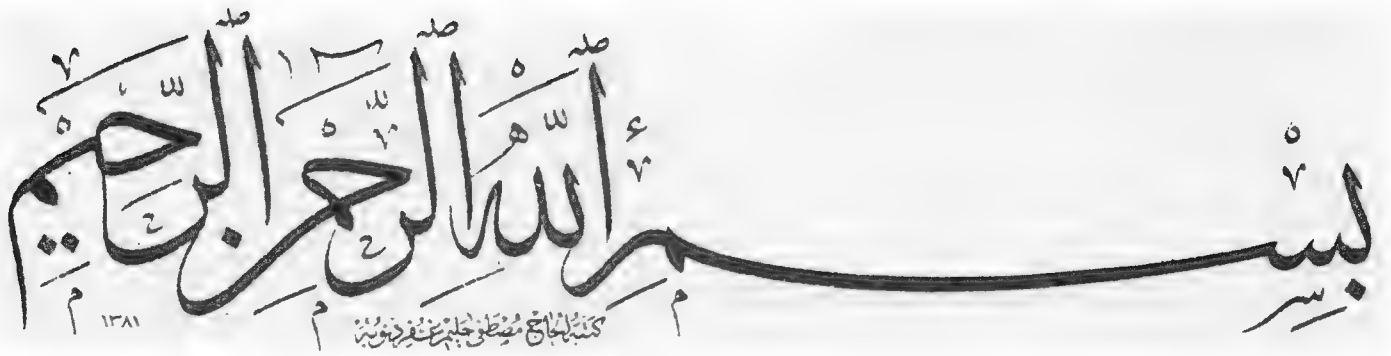 بِسْمِ اللّٰهِ الرَّحْمٰنِ الرَّحِيمِ
كتبه الحاج مصطفى حليم غفر ذنوبه
١٣٨١